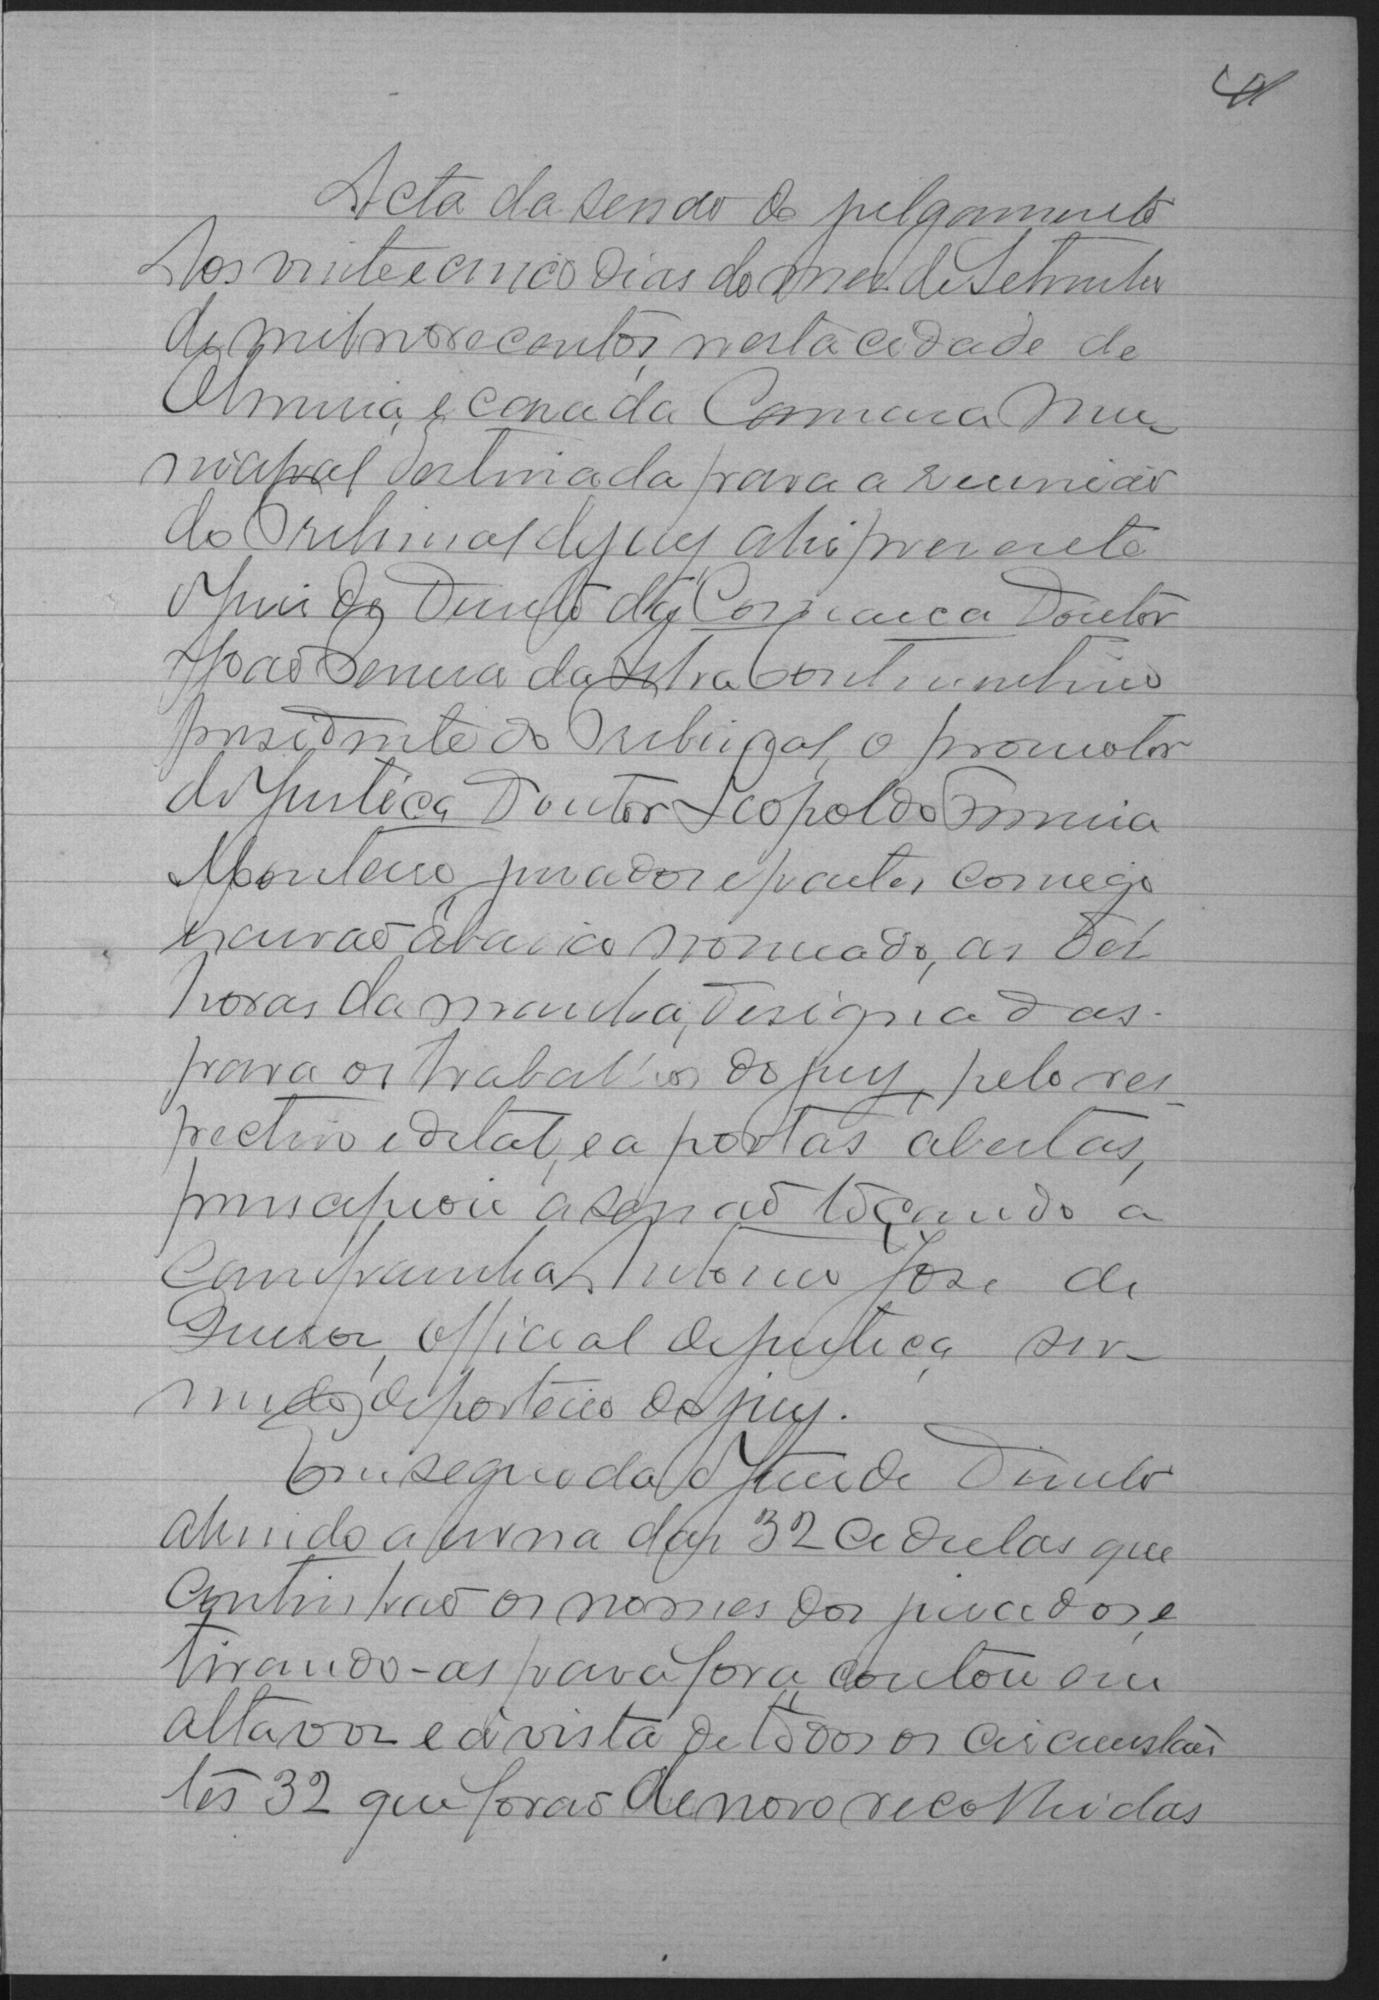 Acta da sessão do julgamento
Aos vinte e cinco dias do mez de Setembro
de mil novecentos, nesta cidade de
e casa da Camara Mu-
nicipal destinada para a reunião
do Tribunal do jury, ahi presente
o Juiz de Direito da Comarca Doutor
João da Silva
presidente do Tribunal, o promotor
de Justiça Doutor Leopoldo Ferreira
Monteiro, jurados e partes comigo
escrivão abaixo nomeado, as dez
horas da manhã, designadas
para os trabalhos do jury, pelo res-
pectivo edital, e a portas abertas,
principiou a sessão tocando a
campainha Antonio José de
Souza, official de justiça ser-
vindo de porteiro do jury.
Em seguida o Juiz de Direito
abrindo a urna das 32 cedulas que
continhão os nomes dos jurados, e
tirando-as para fora, contou em
alta voz e á vista de todos os circumstan
tes 32 que forão de novo recolhidas